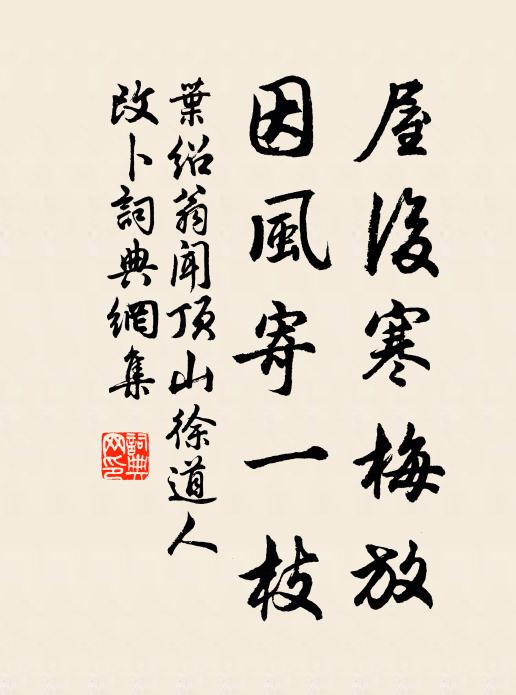 屋後寒梅放
因風寄一枝
葉紹翁聞頂山徐道人
改卜詞典網集
詞典網印